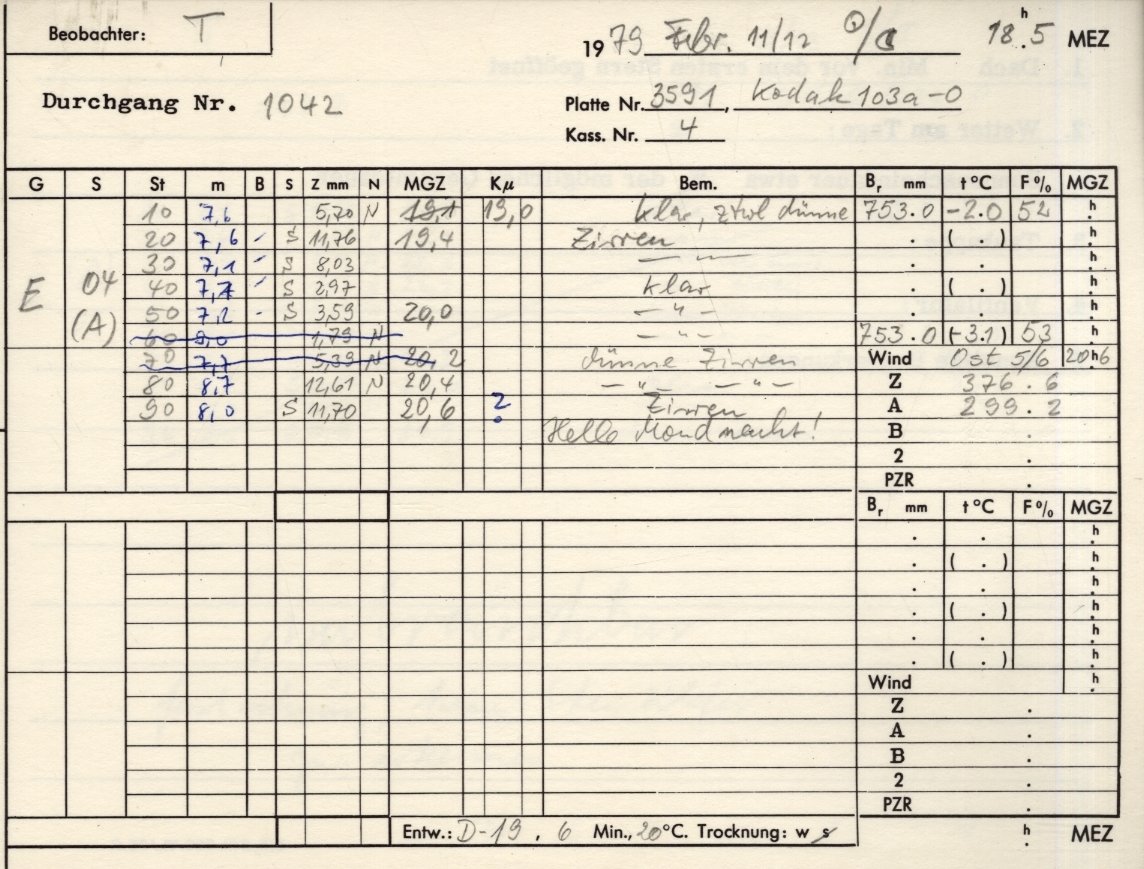 Beobachter: T
1979 Febr. 11/12 ☉/☾ 18.ʰ5 MEZ
Durchgang Nr. 1042
Platte Nr. 3591, Kodak 103a-O
Kass. Nr. 4
G S St m B S Z mm N MGZ Kμ Bem. Bᵣ mm t°C F% MGZ
10 7,6 5,70 N 19,1 19,0 klar, ztwl dünne 753.0 -2.0 52 h
20 7,6 - S 11,76 19,4 Zirren . ( . ) h
30 7,1 - S 8,03 — " — . . h
E 04 (A) 40 7,7 - S 2,97 klar . ( . ) h
50 7,2 - S 3,59 20,0 — " — . . h
60 8,0 1,79 N — " — 753.0 (-3.1) 53 h
70 7,7 5,39 N 20,2 dünne Zirren Wind Ost 5/6 20h6
80 8,7 12,61 N 20,4 — " — — " — Z 376.6
90 8,0 S 11,70 20,6 ? Zirren A 299.2
Helle Mondnacht! B .
2 .
PZR .
Bᵣ mm t°C F% MGZ
. . h
. ( . ) h
. . h
. ( . ) h
. . h
. ( . ) h
Wind h
Z .
A .
B .
2 .
PZR .
Entw.: D-19. 6 Min., 20°C. Trocknung: w s h. MEZ